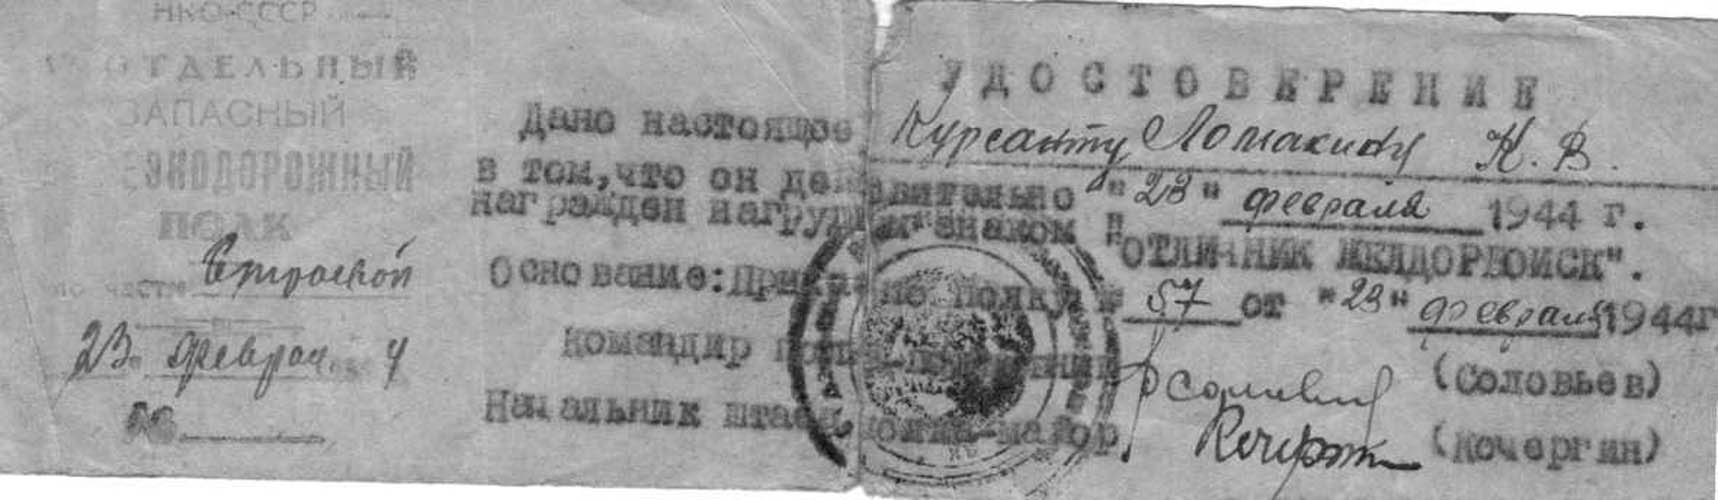 НКО-СССР
ОТДЕЛЬНЫЙ
ЗАПАСНЫЙ
ПОЛК
по части Строевой
23 феврал. 4
№
УДОСТОВЕРЕНИЕ
Дано настоящее Курсанту Ломакину К. В.
в том, что он действительно "23" февраля 1944 г.
награжден "ОТЛИЧНИК ЖЕЛДОРВОЙСК".
Основание: Приказ по полку № 57 от "23" февраля 1944г
Командир (Соловьев)
Начальник штаба полка-майор (Кочергин)